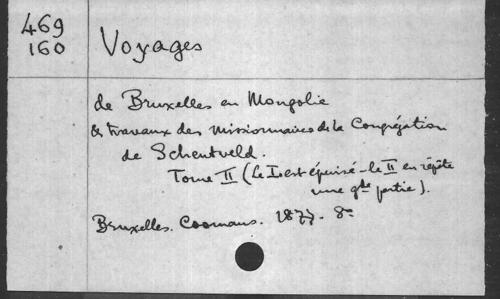 469
160
Voyages
de Bruxelles en Mongolie
& travaux des missionnaires de la Congrégation
de Scheutveld.
Tome II (Le I est épuisé - le II en répète
une gde partie).
Bruxelles. Coomans. 1877. 8o